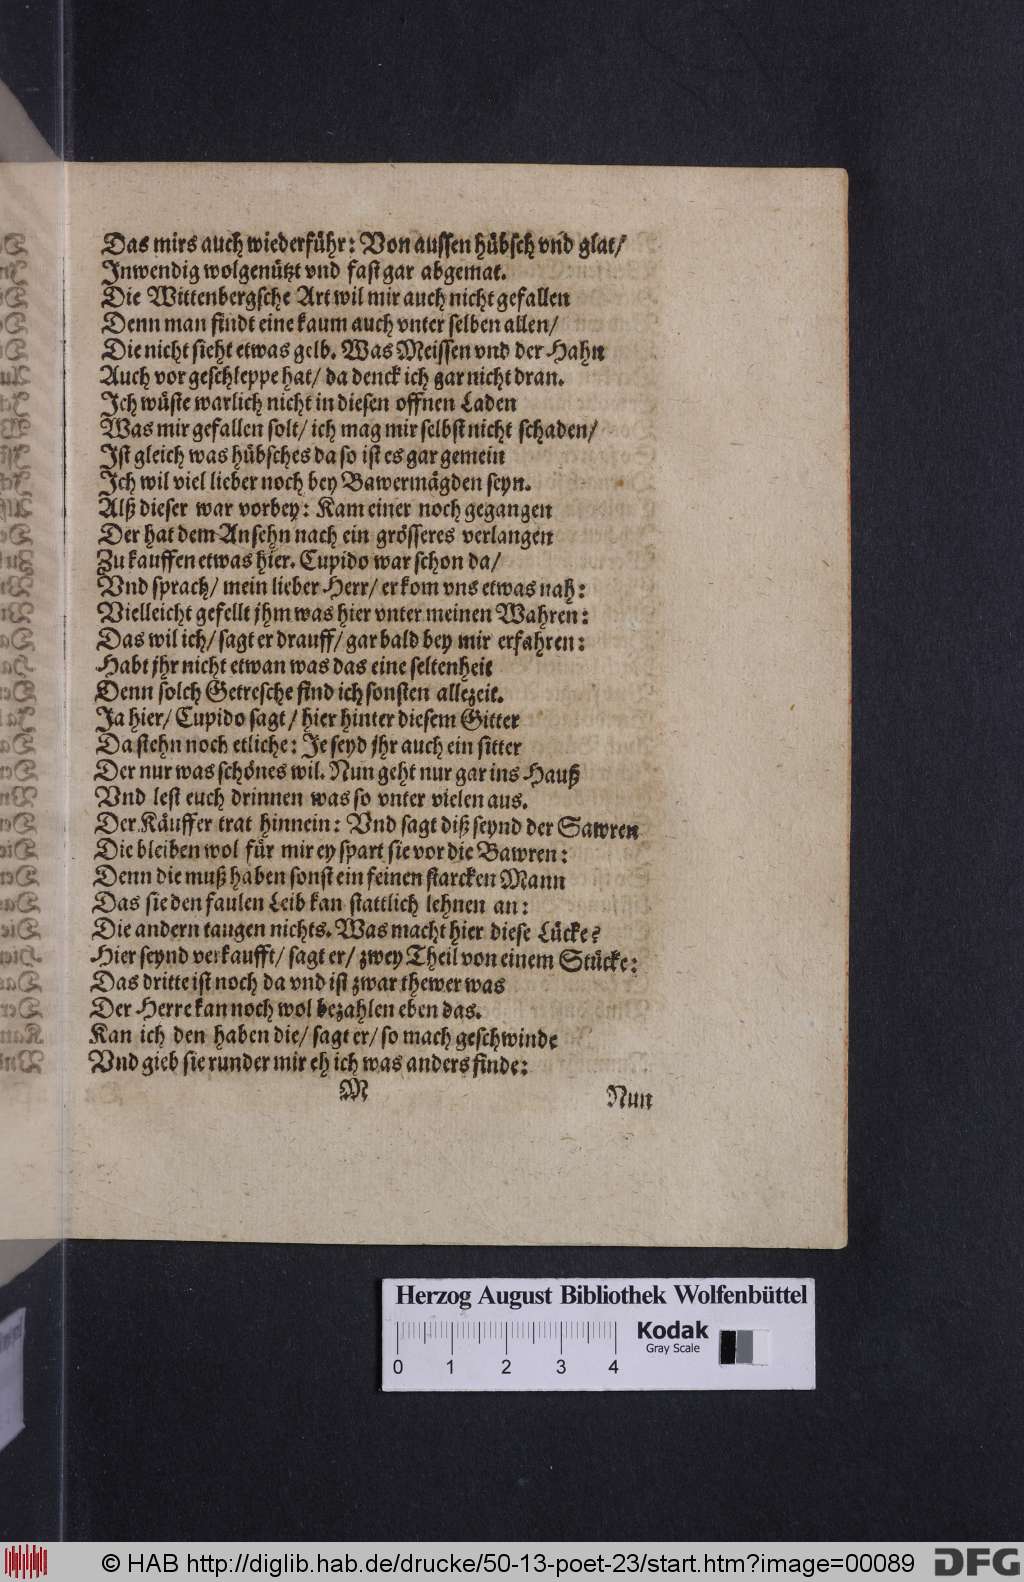 Das mirs auch wiederführ: Von aussen hübsch vnd glat/
Inwendig wolgenützt vnd fast gar abgemat.
Die Wittenbergsche Art wil mir auch nicht gefallen
Denn man findt eine kaum auch vnter selben allen/
Die nicht sieht etwas gelb. Was Meissen vnd der Hahn
Auch vor geschleppe hat/ da denck ich gar nicht dran.
Ich wüste warlich nicht in diesen offnen Laden
Was mir gefallen solt/ ich mag mir selbst nicht schaden/
Ist gleich was hübsches da so ist es gar gemein
Ich wil viel lieber noch bey Bawermägden seyn.
Alß dieser war vorbey: Kam einer noch gegangen
Der hat dem Ansehn nach ein grösseres verlangen
Zu kauffen etwas hier. Cupido war schon da/
Vnd sprach/ mein lieber Herr/ er kom vns etwas nah:
Vielleicht gefellt jhm was hier vnter meinen Wahren:
Das wil ich/ sagt er drauff/ gar bald bey mir erfahren:
Habt jhr nicht etwan was das eine seltenheit
Denn solch Getresche find ich sonsten allezeit.
Ja hier/ Cupido sagt/ hier hinter diesem Gitter
Da stehn noch etliche: Je seyd jhr auch ein sitter
Der nur was schönes wil. Nun geht nur gar ins Hauß
Vnd lest euch drinnen was so vnter vielen aus.
Der Käuffer trat hinnein: Vnd sagt diß seynd der Sawren
Die bleiben wol für mir ey spart sie vor die Bawren:
Denn die muß haben sonst ein feinen starcken Mann
Das sie den faulen Leib kan stattlich lehnen an:
Die andern taugen nichts. Was macht hier diese Lücke?
Hier seynd verkaufft/ sagt er/ zwey Theil von einem Stücke:
Das dritte ist noch da vnd ist zwar thewer was
Der Herre kan noch wol bezahlen eben das.
Kan ich den haben die/ sagt er/ so mach geschwinde
Vnd gieb sie runder mir eh ich was anders finde:
M Nun
Herzog August Bibliothek Wolfenbüttel
Kodak
Gray Scale
0 1 2 3 4
© HAB http://diglib.hab.de/drucke/50-13-poet-23/start.htm?image=00089 DFG